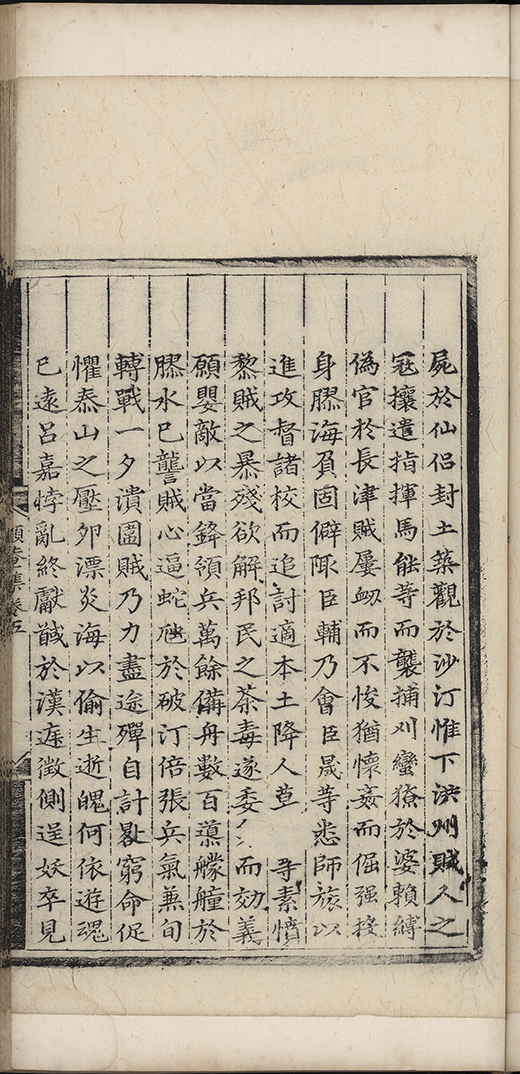 屍於仙侶封土築觀於沙汀惟下洪州賊人之
冦攘遣指揮馬能等而襲捕刈蠻獠於婆賴縛
偽官於長津賊屢衂而不悛猶懷姦而倔强投
身膠海負固僻陬臣輔乃會臣晟等悉師旅以
進攻督諸校而追討適本土降人莫 等素憤
黎賊之暴殘欲解邦民之荼毒遂委 而効義
願嬰敵以當鋒領兵萬餘備舟數百蕩艨艟於
膠水已讋賊心逼蛇虺於破汀倍張兵氣兼旬
轉戰一夕潰圍賊乃力盡途殫自計晷窮命促
懼泰山之壓夘漂炎海以偷生逝魄何依遊魂
已遠呂嘉悖亂終獻馘於漢庭徵側逞妖卒見
頤菴集卷五